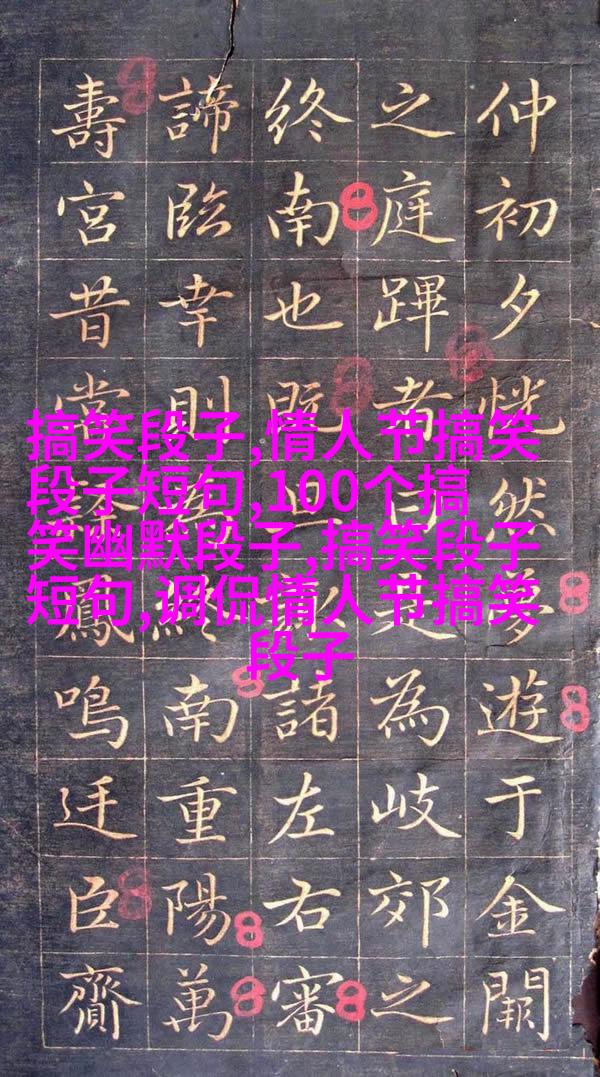 搞笑段子,情人节搞笑
段子短句,100个搞
笑幽默段子,搞笑段子
短句,调侃情人节搞笑
段子
仲初夕恍然夢遊于金闕
之庭蹕者曰為岐郊之
終南也既旦諸左右審
諦臨幸則終南重陽萬
壽宮昔當鳳鳴廷臣齎